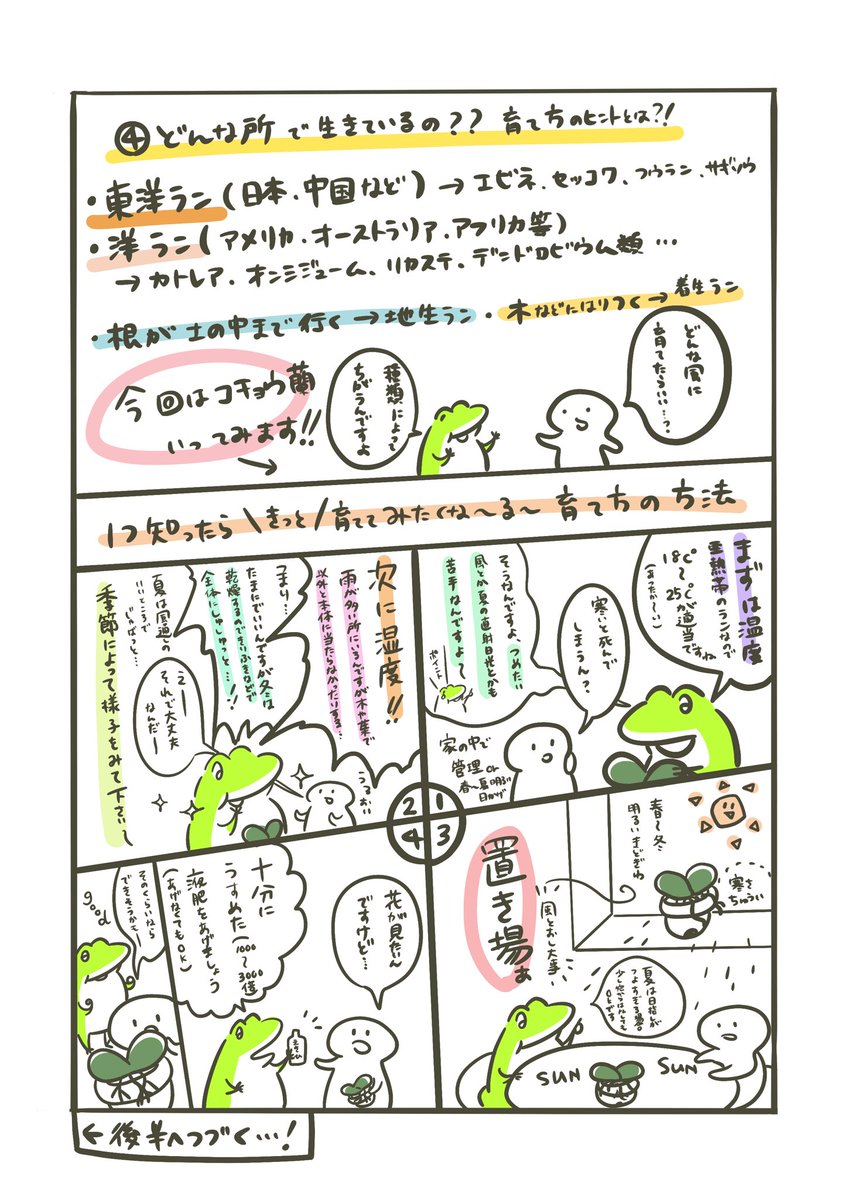 ④どんな所で生きているの?? 育て方のヒントとは?!
・東洋ラン(日本、中国など)→エビネ、セッコク、フウラン、サギソウ
・洋ラン(アメリカ、オーストラリア、アフリカ等)
→カトレア、オンシジューム、リカステ、デンドロビウム類…
・根が土の中まで行く→地生ラン・木などにはりつく→着生ラン
どんな風に
育てたらいい…?
種類によって
ちがうんですよ
今回はコチョウ蘭
いってみます!!
→
1つ知ったら\きっと/育ててみたくな〜る〜育て方の方法
まずは温度
亜熱帯のランなので
18℃
〜
25℃が適当ですね
(あったか〜い)
寒いと死んで
しまうん?
そうなんですよ、つめたい
風とか夏の直射日光とかも
苦手なんですよ〜
ポイント
家の中で
管理or
春〜夏明るい
日かげ
1
次に湿度!!
雨が多い所にいるんですが木や葉で
以外と本体に当たらなかったりする…
つまり…
たまにでいいんですが冬は
乾燥するのできりふきなどで
全体にしゅしゅっと…!!
夏は風通しの
いいところで
じゃばっと…
季節によって様子をみて下さい〜
えー
それで大丈夫
なんだー
うるおい
2
置き場ぁ
風とおし大事
春〜冬
明るいまどぎわ
寒さ
ちゅうい
夏は日指しが
つよすぎる場。
少し窓からはなしても
OKです
SUN
SUN
3
花が見たいん
ですけど…
十分に
うすめた(1000〜3000倍
液肥をあげましょう
(あげなくてもOK)
そのくらいなら
できそうかもー
good
4
←後半へつづく…!